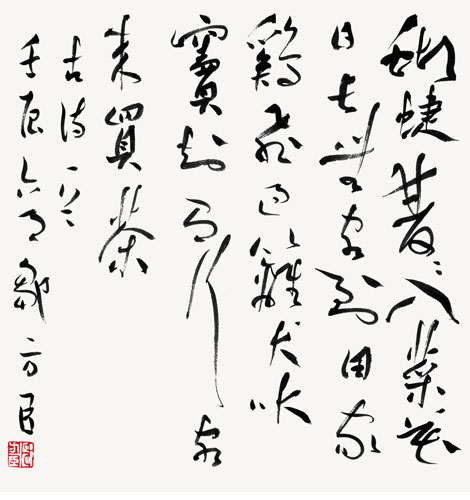 蝴蜨雙〻入菜花
日長無客到田家
鷄飛過籬犬吠
竇知有行商
来買茶
古詩一首
壬辰六月鄒方臣